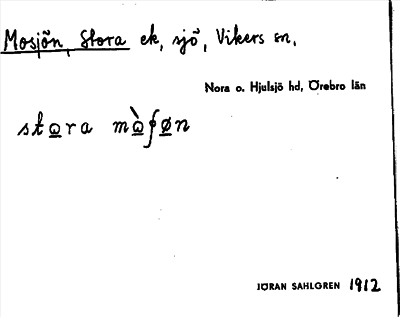 Mosjön, Stora ek, sjö, Vikers sn.
Nora o. Hjulsjö hd, Örebro län
sto̲ra mò̲ʃø̲n
JÖRAN SAHLGREN 1912